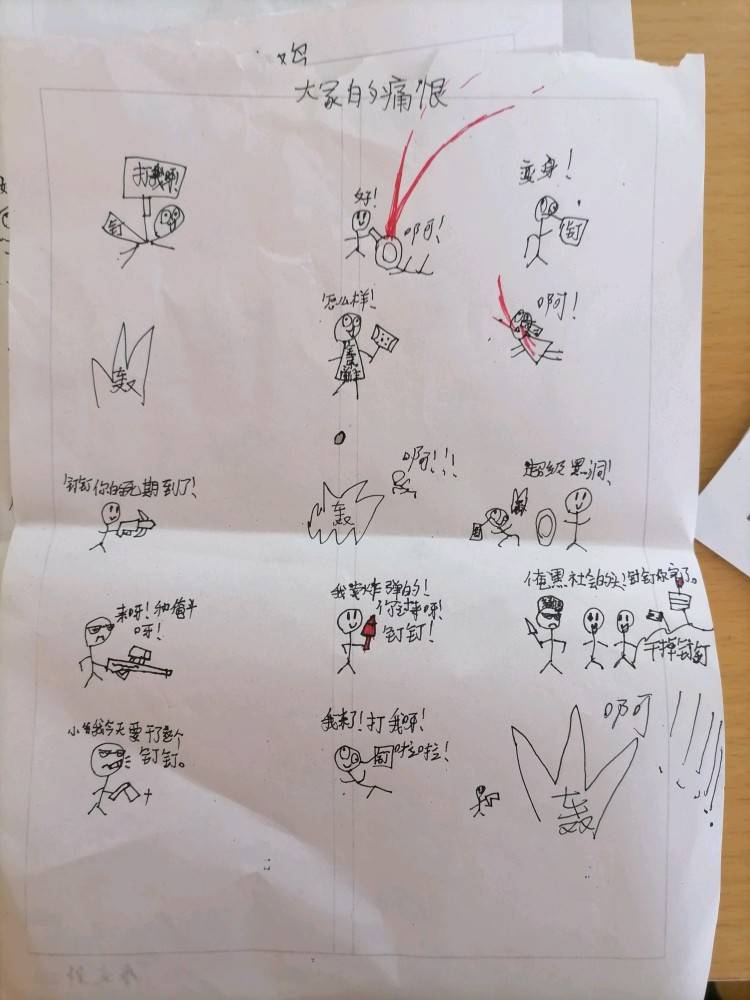 大家的痛恨
打我呀!
钉
好!
啊!
变身!
钉
轰
怎么样!
啊!
钉钉你的死期到了!
轰
啊!!!
超级黑洞!
轰
来呀!
呀!
我是炸弹的!
你过来呀!
钉钉!
俺黑社会的头!钉钉你完了。
干掉钉钉
我今天要干了这个
钉钉。
我来了!打我呀!
钉
啦啦!
轰
啊!!!!!